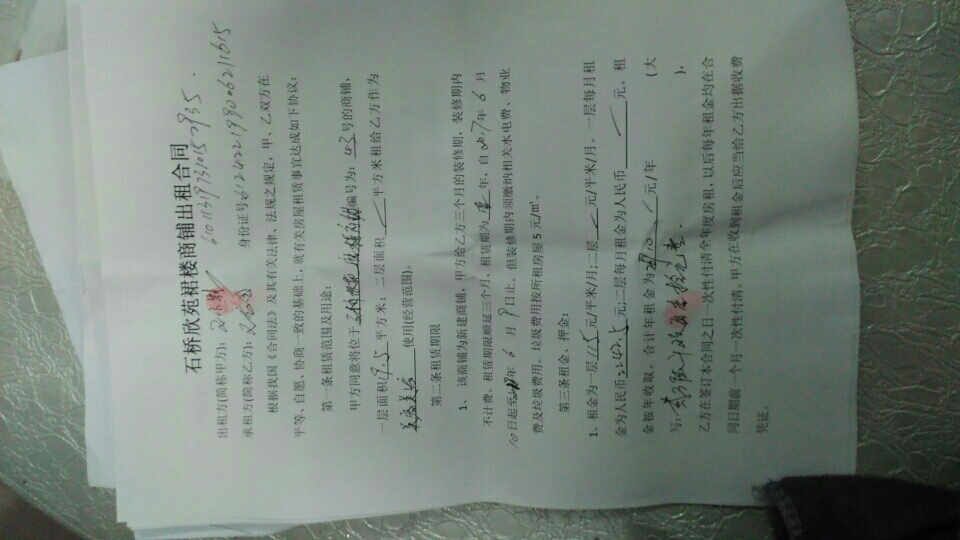 石桥欣苑裙楼商铺出租合同
出租方(简称甲方):
承租方(简称乙方): 身份证号612422199006211615
根据我国《合同法》及其有关法律、法规之规定,甲、乙双方在
平等、自愿、协商一致的基础上,就有关房屋租赁事宜达成如下协议:
第一条租赁范围及用途:
甲方同意将位于 编号为: 43号的商铺,
一层面积19.5平方米; 二层面积 平方米租给乙方作为
使用(经营范围)。
第二条租赁期限
1、该商铺为新建商铺,甲方给乙方三个月的装修期,装修期内
不计费,租赁期限顺延三个月,租赁期为 年,自 年6月
10日起至 年6月9日止,但装修期内须缴纳相关水电费、物业
费及垃圾费用。垃圾费用按所租房屋5元/m²。
第三条租金、押金:
1、租金为一层115元/平米/月;二层 元/平米/月。一层每月租
金为人民币2242.5元;二层每月租金为人民币 元。租
金按年收取,合计年租金为 元/年 (大
写: ),
乙方在签订本合同之日一次性付清全年度房租,以后每年租金均在合
同日期前一个月一次性付清,甲方在收到租金后应当给乙方出据收费
凭证。